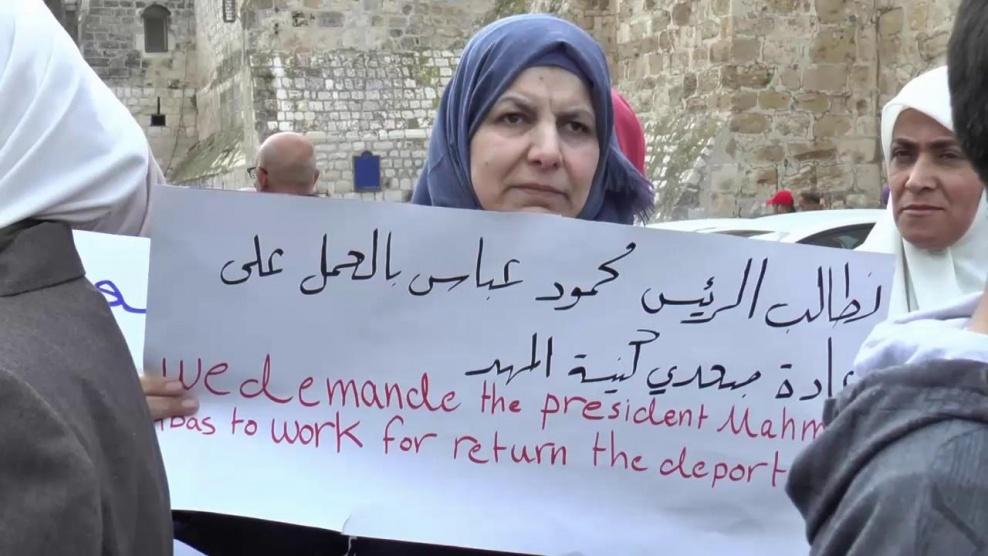 نطالب الرئيس محمود عباس بالعمل على
عادة مبعدي كنيسة المهد
we demande the president Mahm
bas to work for return the deport